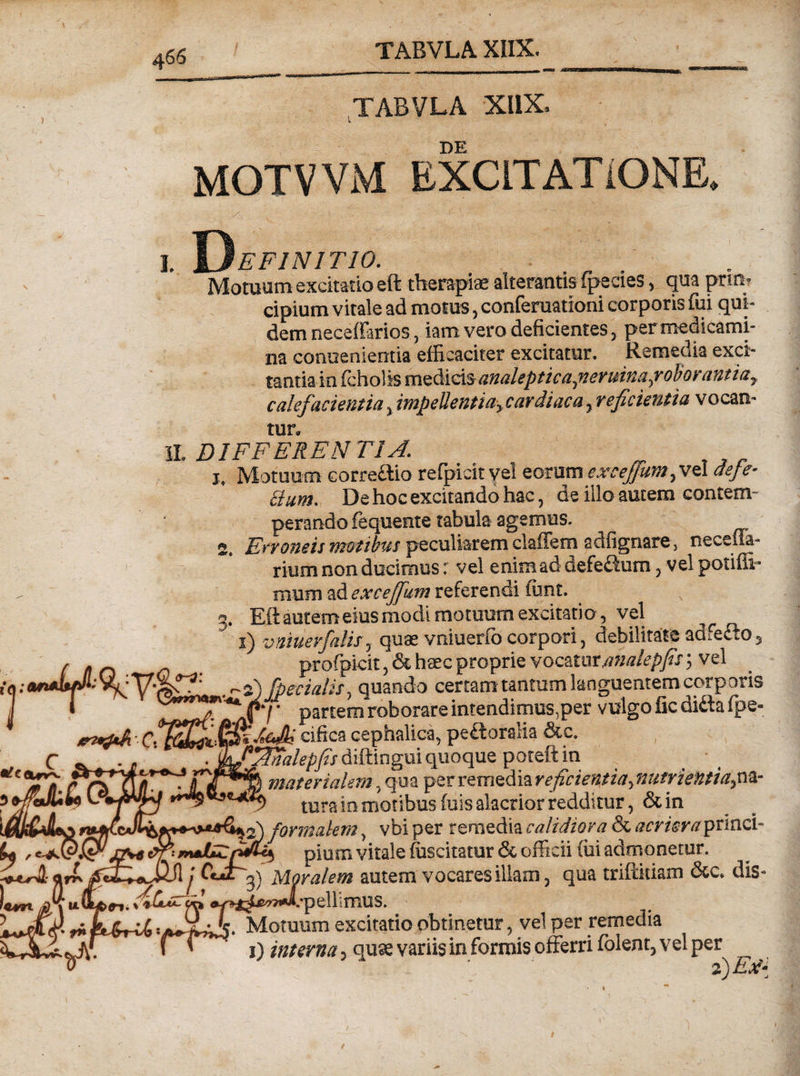 466 TABVLA XIIX.
TABVLA XIIX.
DE
MOTVVM EXCITATIONE.
I. DEFINITIO.
Motuum excitatio eſt therapiæ alterantis ſpecies, qua prin-
cipium vitale ad motus, conſeruationi corporis ſui qui-
dem neceſſarios, iam vero deficientes, per medicami-
na conuenientia efficaciter excitatur. Remedia exci-
tantia in ſcholis medicis analeptica, neruina, roborantia,
calefacientia, impellentia, cardiaca, reficientia vocan-
tur.
II. DIFFERENTIA.
1. Motuum correctio reſpicit vel eorum exceſſum, vel defe-
ctum. De hoc excitando hac, de illo autem contem-
perando ſequente tabula agemus.
2. Erroneis motibus peculiarem claſſem adſignare, neceſſa-
rium non ducimus: vel enim ad defectum, vel potiſſi-
mum ad exceſſum referendi ſunt.
3. Eſt autem eius modi motuum excitatio, vel
1) vniuerſalis, quæ vniuerſo corpori, debilitate adfecto,
proſpicit, & hæc proprie vocatur analepſis; vel
2) ſpecialis, quando certam tantum languentem corporis
partem roborare intendimus, per vulgo ſic dicta ſpe-
cifica cephalica, pectoralia &c.
Analepſis diſtingui quoque poteſt in
materialem, qua per remedia reficientia, nutrientia, na-
tura in motibus ſuis alacrior redditur, & in
2) formalem, vbi per remedia calidiora & acriora princi-
pium vitale ſuſcitatur & officii ſui admonetur.
3) Moralem autem vocares illam, qua triſtitiam &c. dis-
pellimus.
5. Motuum excitatio obtinetur, vel per remedia
1) interna, quæ variis in formis offerri ſolent, vel per
2) Ex-